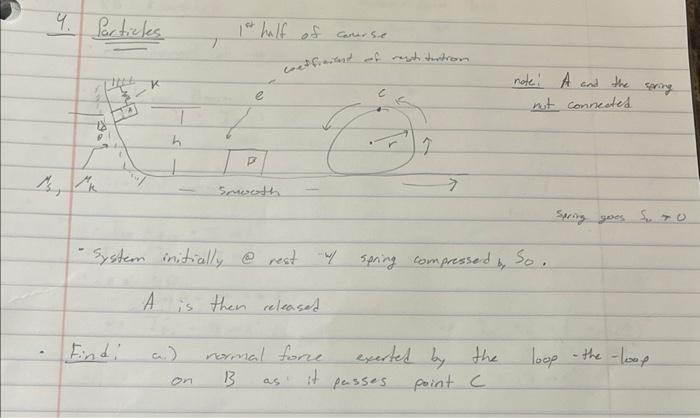 4. Particles , 1st half of course
coefficient of restitution
note: A and the spring
not connected
K
e
C
A
θ
h
r
B
μs, μk
smooth
spring goes S0 → 0
- System initially @ rest w/ spring compressed by S0.
A is then released
• Find: a.) normal force exerted by the loop-the-loop
on B as it passes point C